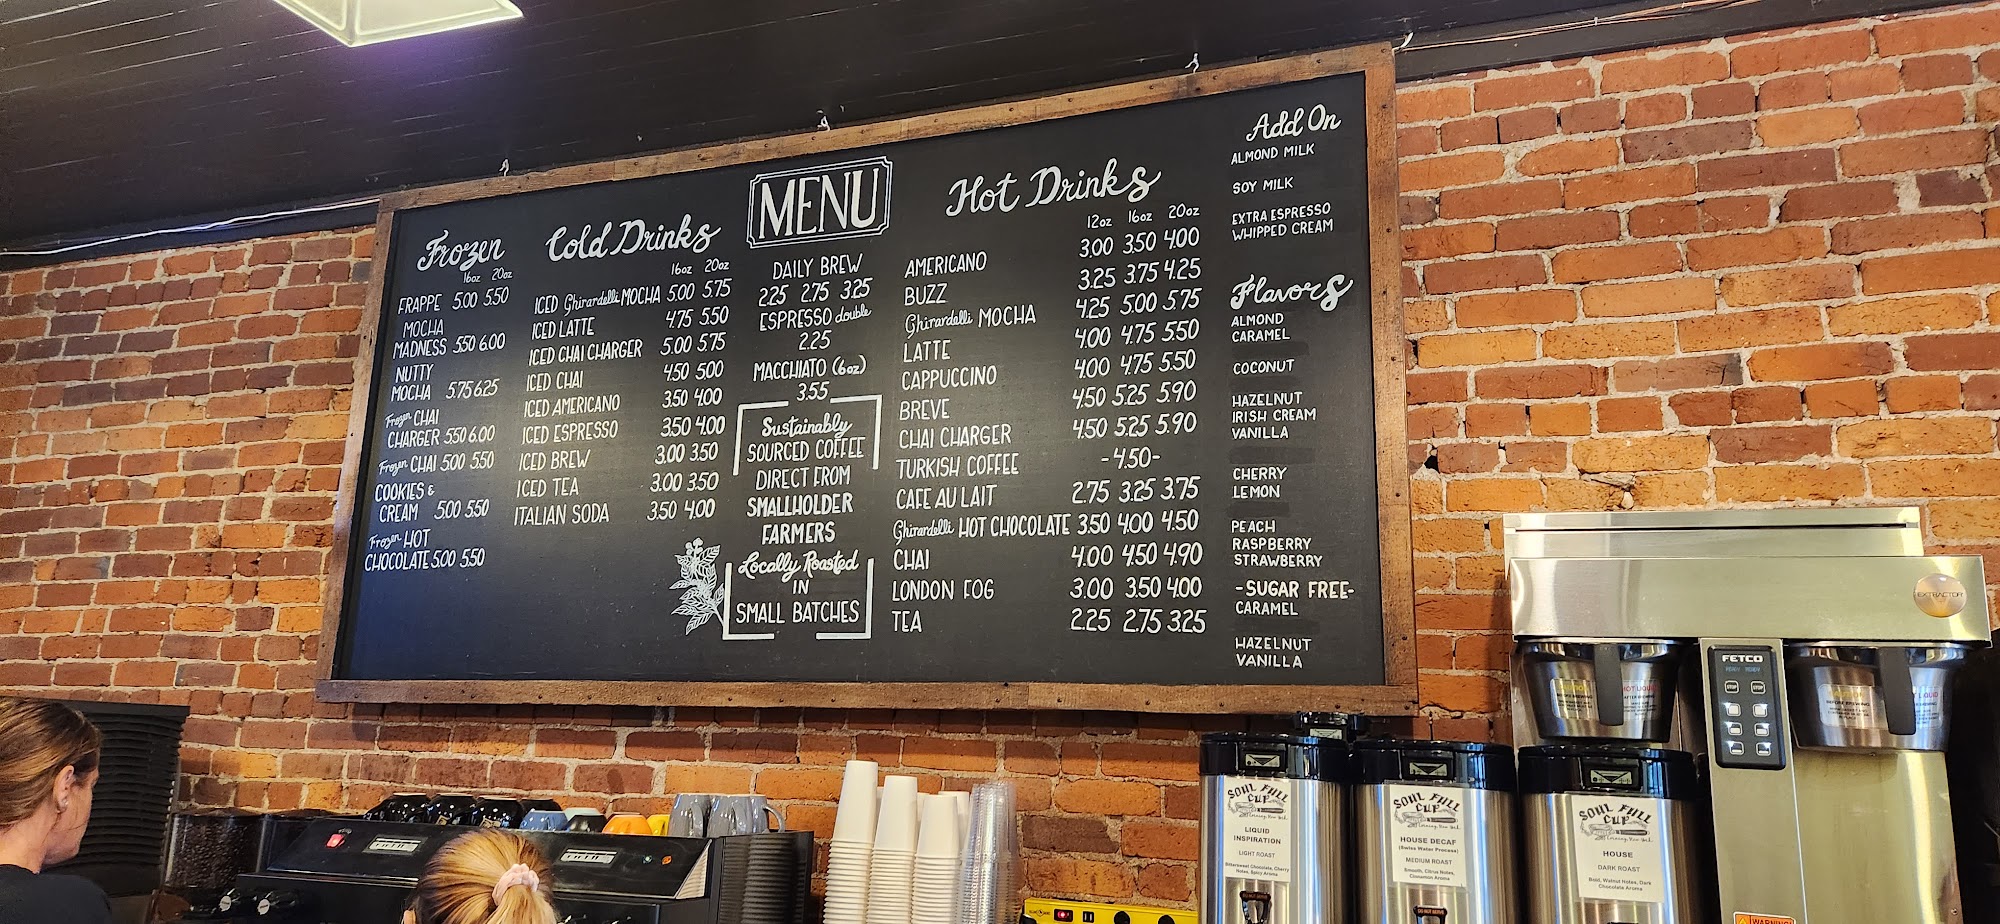 Frozen
16oz 20oz
FRAPPE 5.00 5.50
MOCHA
MADNESS 5.50 6.00
NUTTY
MOCHA 5.75 6.25
Frozen CHAI
CHARGER 5.50 6.00
Frozen CHAI 5.00 5.50
COOKIES &
CREAM 5.00 5.50
Frozen HOT
CHOCOLATE 5.00 5.50
Cold Drinks
16oz 20oz
ICED Ghirardelli MOCHA 5.00 5.75
ICED LATTE 4.75 5.50
ICED CHAI CHARGER 5.00 5.75
ICED CHAI 4.50 5.00
ICED AMERICANO 3.50 4.00
ICED ESPRESSO 3.50 4.00
ICED BREW 3.00 3.50
ICED TEA 3.00 3.50
ITALIAN SODA 3.50 4.00
MENU
DAILY BREW
2.25 2.75 3.25
ESPRESSO double
2.25
MACCHIATO (6oz)
3.55
Sustainably
SOURCED COFFEE
DIRECT FROM
SMALLHOLDER
FARMERS
Locally Roasted
IN
SMALL BATCHES
Hot Drinks
12oz 16oz 20oz
AMERICANO 3.00 3.50 4.00
BUZZ 3.25 3.75 4.25
Ghirardelli MOCHA 4.25 5.00 5.75
LATTE 4.00 4.75 5.50
CAPPUCCINO 4.00 4.75 5.50
BREVE 4.50 5.25 5.90
CHAI CHARGER 4.50 5.25 5.90
TURKISH COFFEE -4.50-
CAFE AU LAIT 2.75 3.25 3.75
Ghirardelli HOT CHOCOLATE 3.50 4.00 4.50
CHAI 4.00 4.50 4.90
LONDON FOG 3.00 3.50 4.00
TEA 2.25 2.75 3.25
Add On
ALMOND MILK
SOY MILK
EXTRA ESPRESSO
WHIPPED CREAM
Flavors
ALMOND
CARAMEL
COCONUT
HAZELNUT
IRISH CREAM
VANILLA
CHERRY
LEMON
PEACH
RASPBERRY
STRAWBERRY
-SUGAR FREE-
CARAMEL
HAZELNUT
VANILLA
EXTRACTOR
FETCO
STOP STOP
SOUL FULL
CUP
LIQUID
INSPIRATION
LIGHT ROAST
Bittersweet Chocolate, Cherry
Notes, Spicy Aroma
SOUL FULL
CUP
HOUSE DECAF
(Swiss Water Process)
MEDIUM ROAST
Smooth, Citrus Notes,
Cinnamon Aroma
SOUL FULL
CUP
HOUSE
DARK ROAST
Bold, Walnut Notes, Dark
Chocolate Aroma
WARNING!